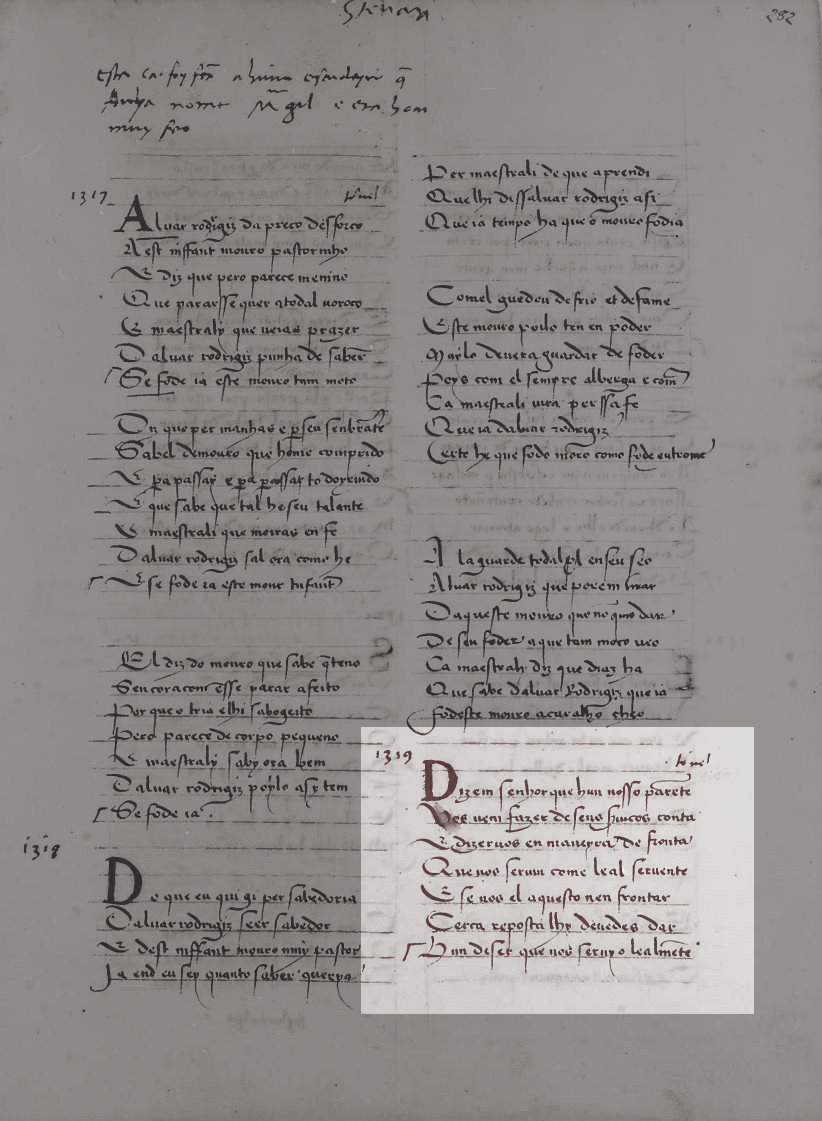 282
Esta
1317
tornel
Alvar rodrigiz da preco desforco
A est inffant mouro pastorinho
E diz que pero parece menino
Que pararsse quer atodal
E maestraly que veias prazer
Daluar rodrigiz punha de saber
Se fode ia este mouro tam moco
Diz que per manhas e
Sabel demouro que home comprido
E
E que sabe que tal he seu talante
E maestrali que moiras en fe
Daluar rodrigiz sal ora como he
E se fode ia este mour
El diz do mouro que sabe q̄ teno
Sen coracon esse parar afeito
Por que o cria elhi
Pero parece de corpo pequeno
E maestraly saby ora bem
Daluar rodrigiz poylo assy tem
Se fode ia.
1318
Do que eu quigi per sabedoria
Daluar rodrigiz seer sabedor
E dest inffant mouro mui pastor
Ja end eu sey quanto saber queria
Per maestrali de que aprendi
Que lhi diss aluar rodrigiz asi
Que ia tempo ha que o mouro fodia
Com el guedou de frio et de fame
Este mouro poilo ten en poder
Mays lo deuera guardar de foder
Poys com el sempre alberga e com̄
Ca maestrali iura per ssa fe
Que ia daluar rodrigiz
Certo he que fode mouro como fode outrome
A la guarde todal en seu seo
Aluar rodrigiz que poren tirar
Daqueste mouro que nō quis dar
De seu foder a que tam moco veo
Ca maestrali diz que diaz ha
Que sabe daluar Rodrigiz que ia
fodeste mouro a caralho cheo
1319
tornel
Dizem senhor que hun vosso parēte
Vos vem fazer de seus seruicos conta
E dizervos en maneyra de fronta
Que vos seruiu come leal seruente
E se vos el aquesto uen frontar
Certa reposta lhy deuedes dar
Hun diser que vos seruyo lealmēte